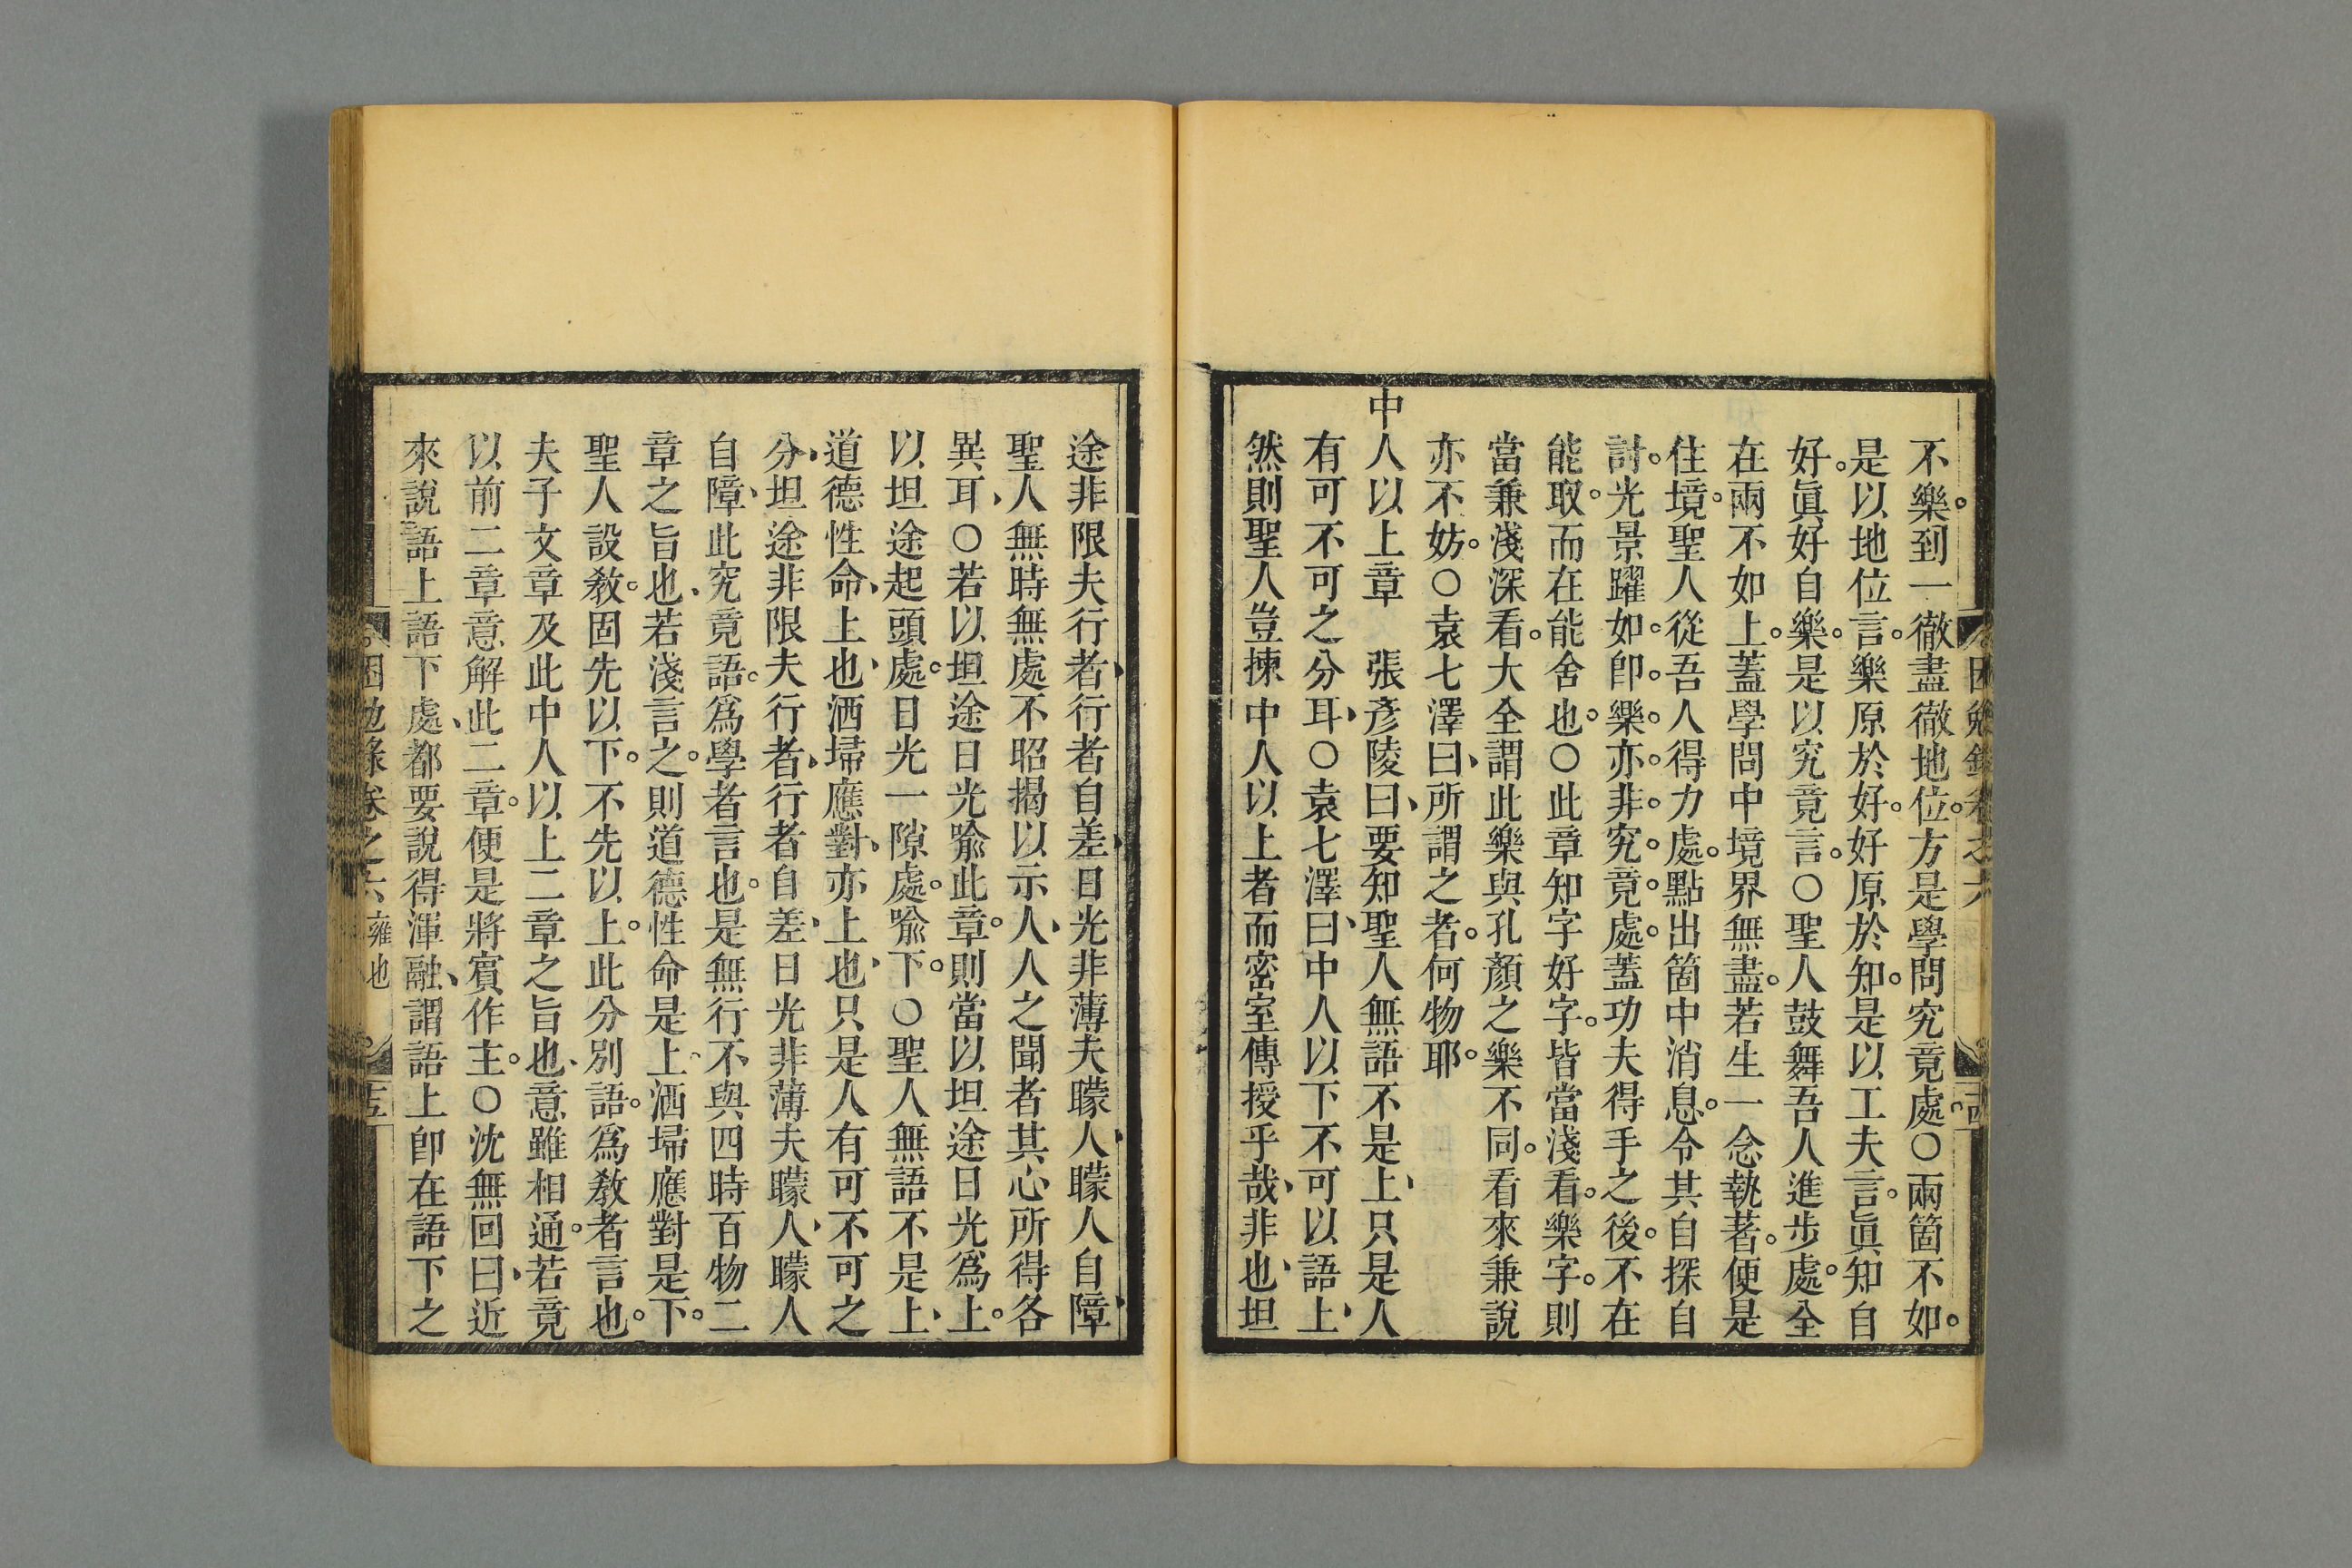 不樂到一徹盡徹地位方是學問究竟處○兩箇不如
是以地位言樂原於好好原於知是以工夫言眞知自
好眞好自樂是以究竟言○聖人鼓舞吾人進步處全
在兩不如上蓋學問中境界無盡若生一念執著便是
住境聖人從吾人得力處點出箇中消息令其自探自
討光景躍如卽樂亦非究竟處蓋功夫得手之後不在
能取而在能舍也○此章知字好字皆當淺看樂字則
當兼淺深看大全謂此樂與孔顏之樂不同看來兼說
亦不妨○袁七澤曰所謂之者何物耶
中人以上章 張彥陵曰要知聖人無語不是上只是人
有可不可之分耳○袁七澤曰中人以下不可以語上
然則聖人豈揀中人以上者而密室傳授乎哉非也坦
途非限夫行者行者自差日光非薄夫矇人矇人自障
聖人無時無處不昭揭以示人人之聞者其心所得各
異耳○若以坦途日光喻此章則當以坦途日光爲上
以坦途起頭處日光一隙處喻下○聖人無語不是上
道德性命上也洒掃應對亦上也只是人有可不可之
分坦途非限夫行者行者自差日光非薄夫矇人矇人
自障此究竟語爲學者言也是無行不與四時百物二
章之旨也若淺言之則道德性命是上洒掃應對是下
聖人設敎固先以下不先以上此分別語爲敎者言也
夫子文章及此中人以上二章之旨也意雖相通若竟
以前二章意解此二章便是將賓作主○沈無回曰近
來說語上語下處都要說得渾融謂語上卽在語下之
困勉錄卷之六 雍也